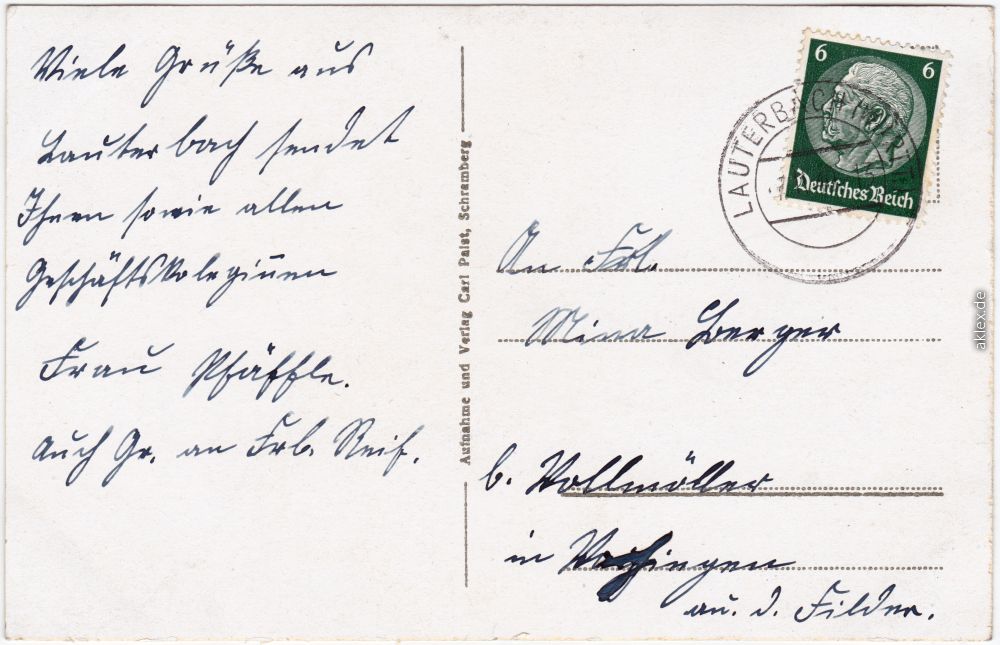 Viele Grüße aus
Lauterbach sendet
Ihnen sowie allen
Geschäftskoleginen
Frau Pfäffle.
Auch Gr. an Frl. Reif.
Aufnahme und Verlag Carl Palst, Schramberg
6 6
Deutsches Reich
LAUTERBACH
An Frl.
Mina Berger
b. Vollmöller
in Vaihingen
au. d. Filder.
aklex.de